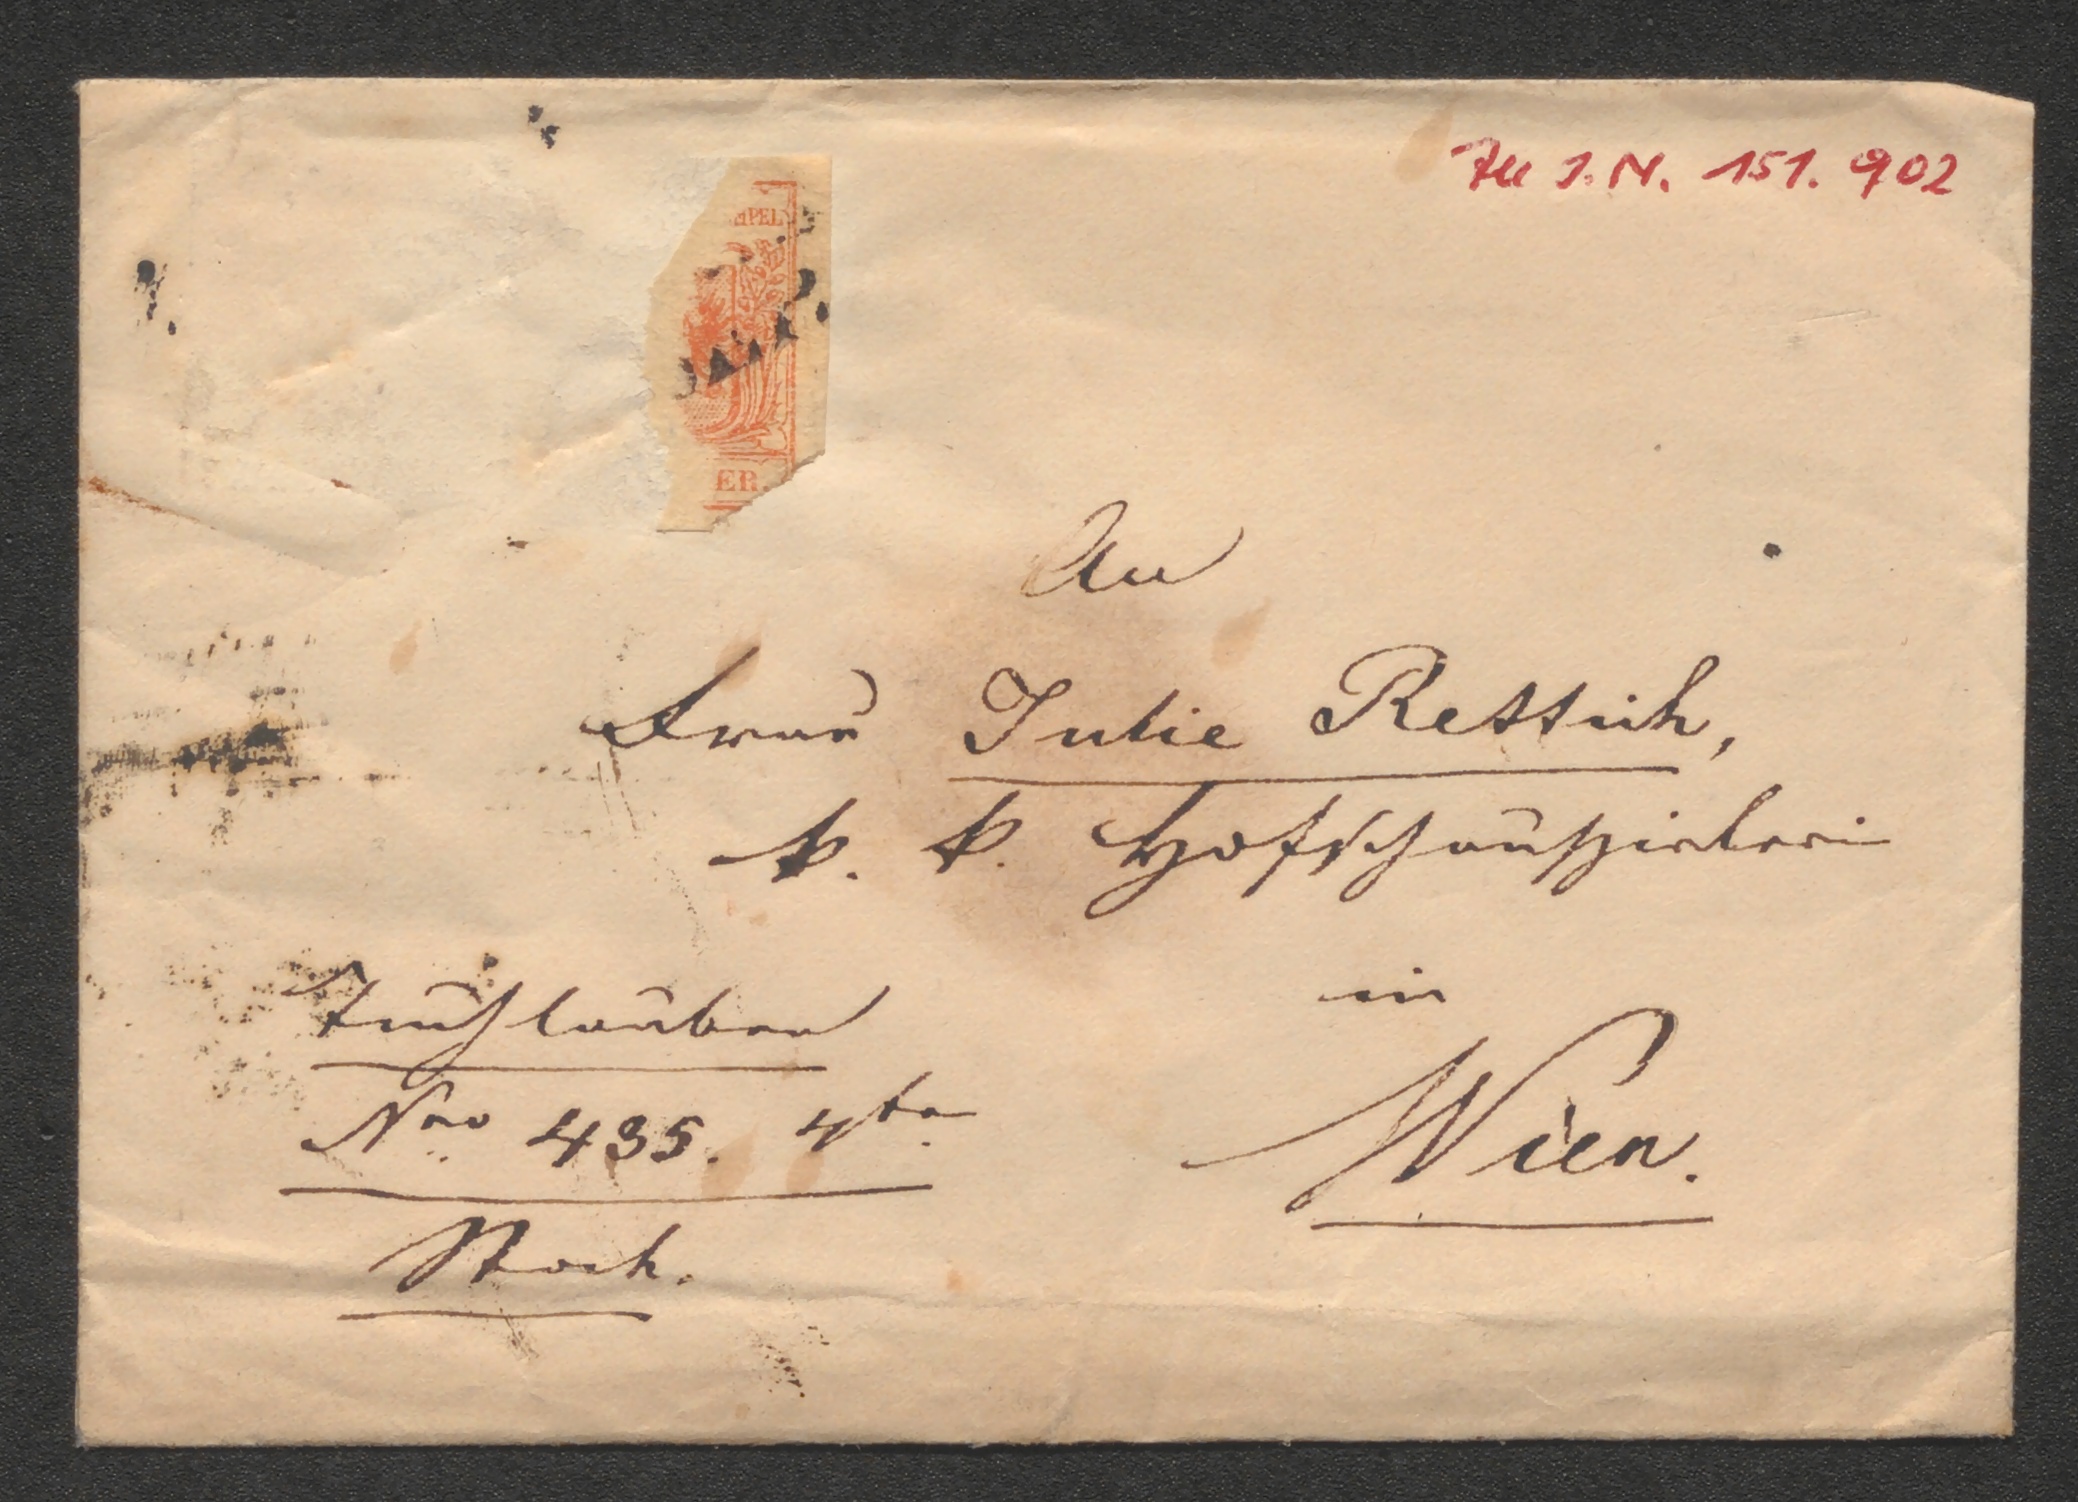 Zu I.N. 151.902
MPEL
ER.
An
Frau Julie Rettich,
k. k. Hofschauspielerin
in
Wien.
Tuchlauben
Nro 435. 4ten
Stock.